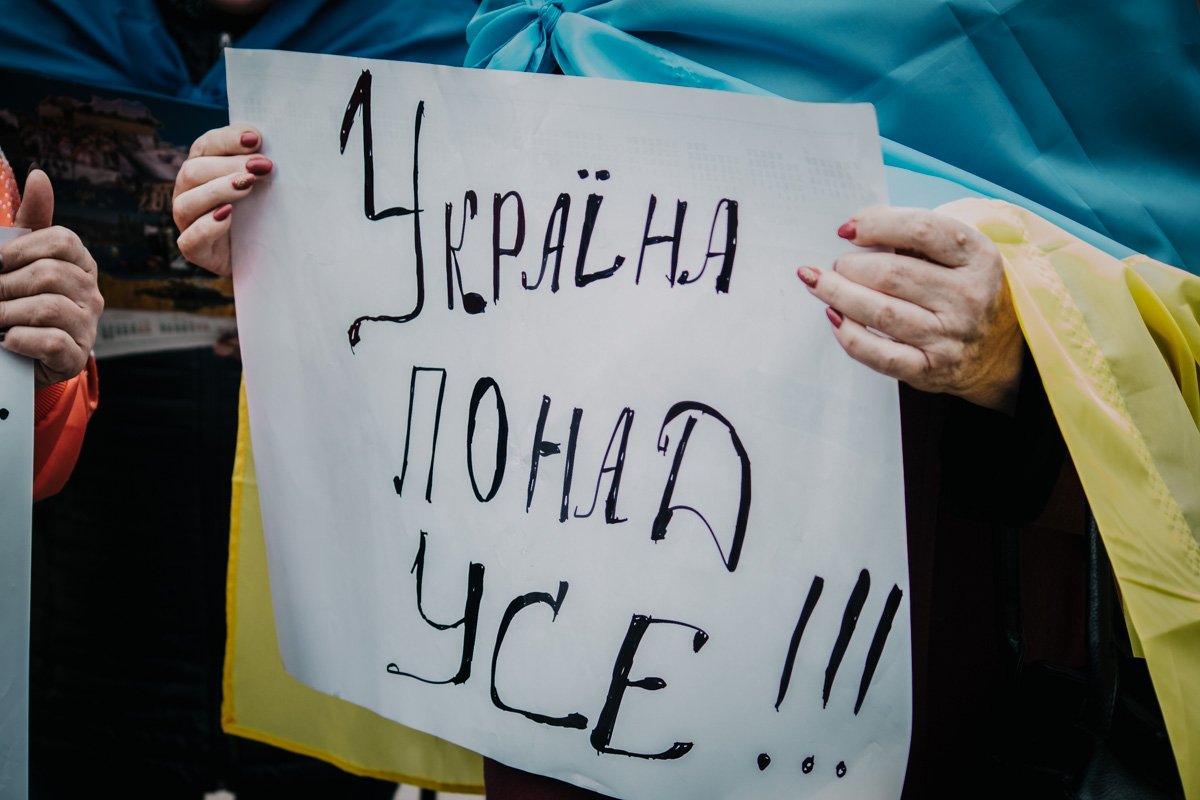 Україна
понад
усе!!!